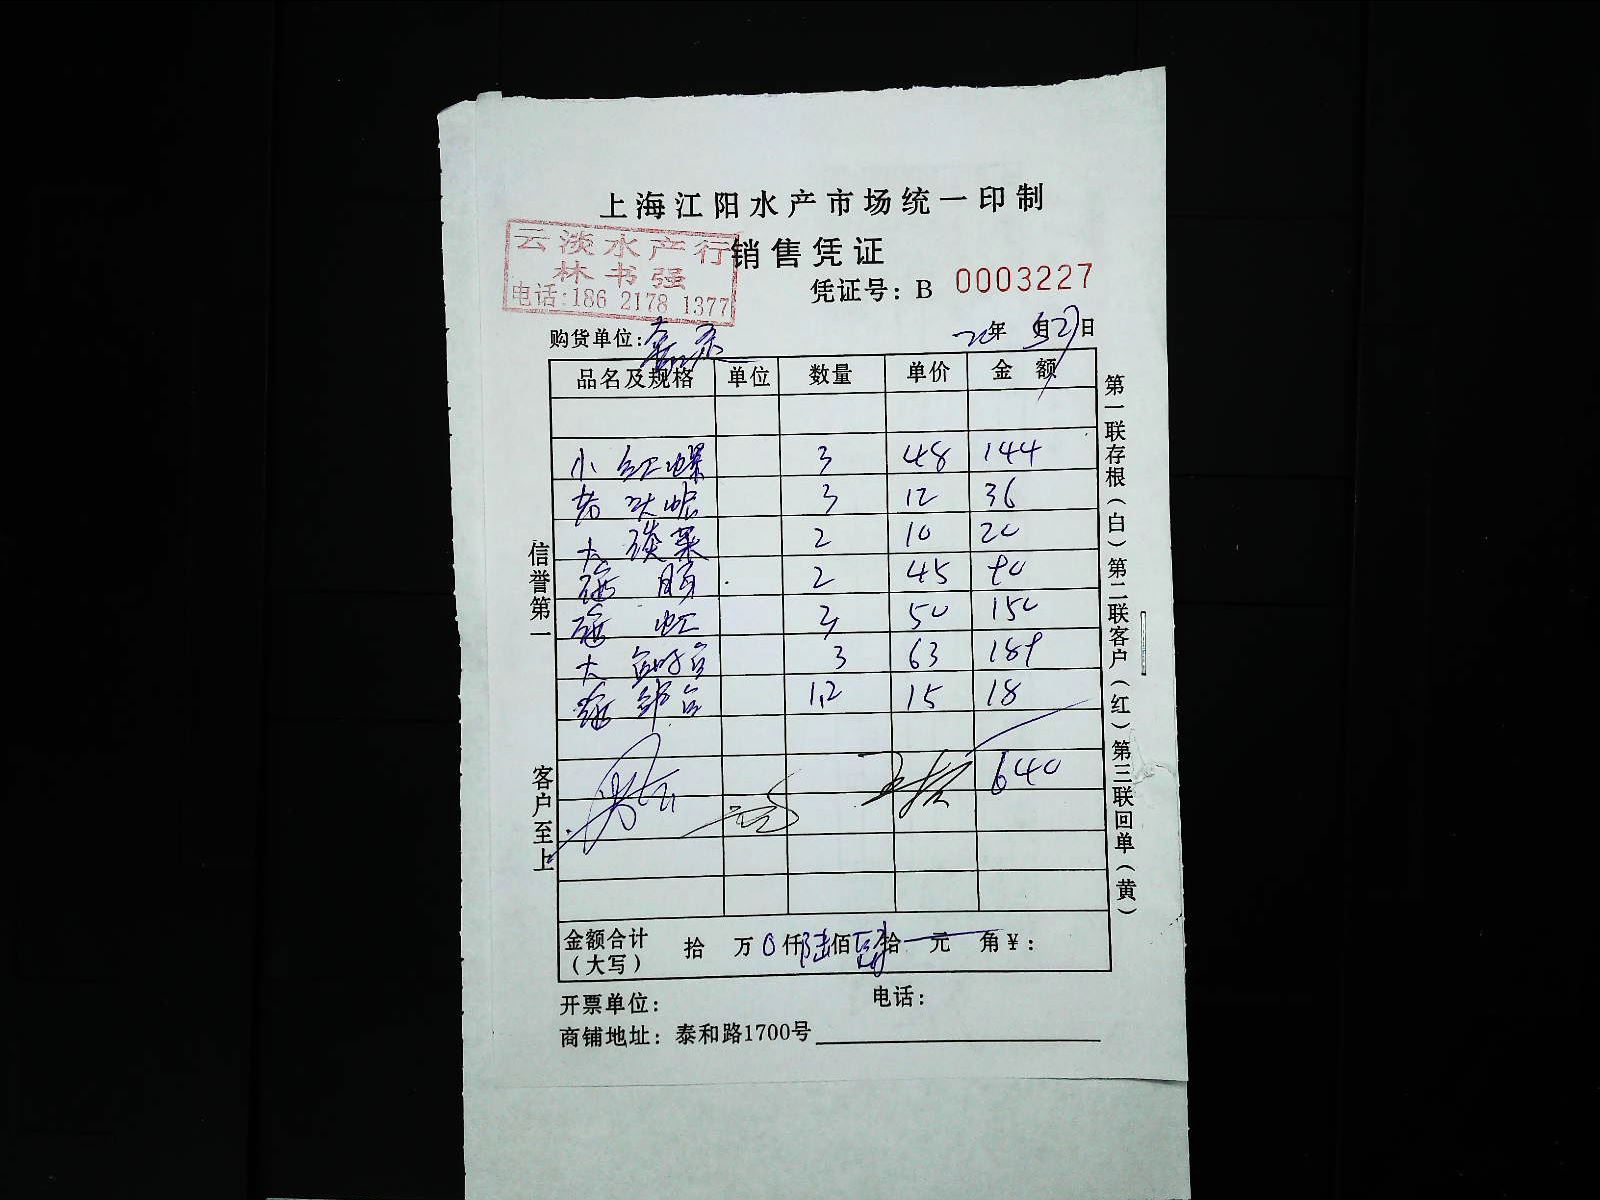 上海江阳水产市场统一印制
云淡水产行
林书强
电话:186 2178 1377
销售凭证
凭证号：B 0003227
购货单位：
20年 月27日
品名及规格 单位 数量 单价 金额
小红螺 3 48 144
老头蛇 3 12 36
大淡菜 2 10 20
海肠 2 45 90
海虹 3 50 150
大 3 63 189
海 1.2 15 18
640
金额合计（大写） 拾 万 0仟陆佰肆拾 元 角￥：
开票单位： 电话：
商铺地址：泰和路1700号
信誉第一
客户至上
第一联存根（白）第二联客户（红）第三联回单（黄）